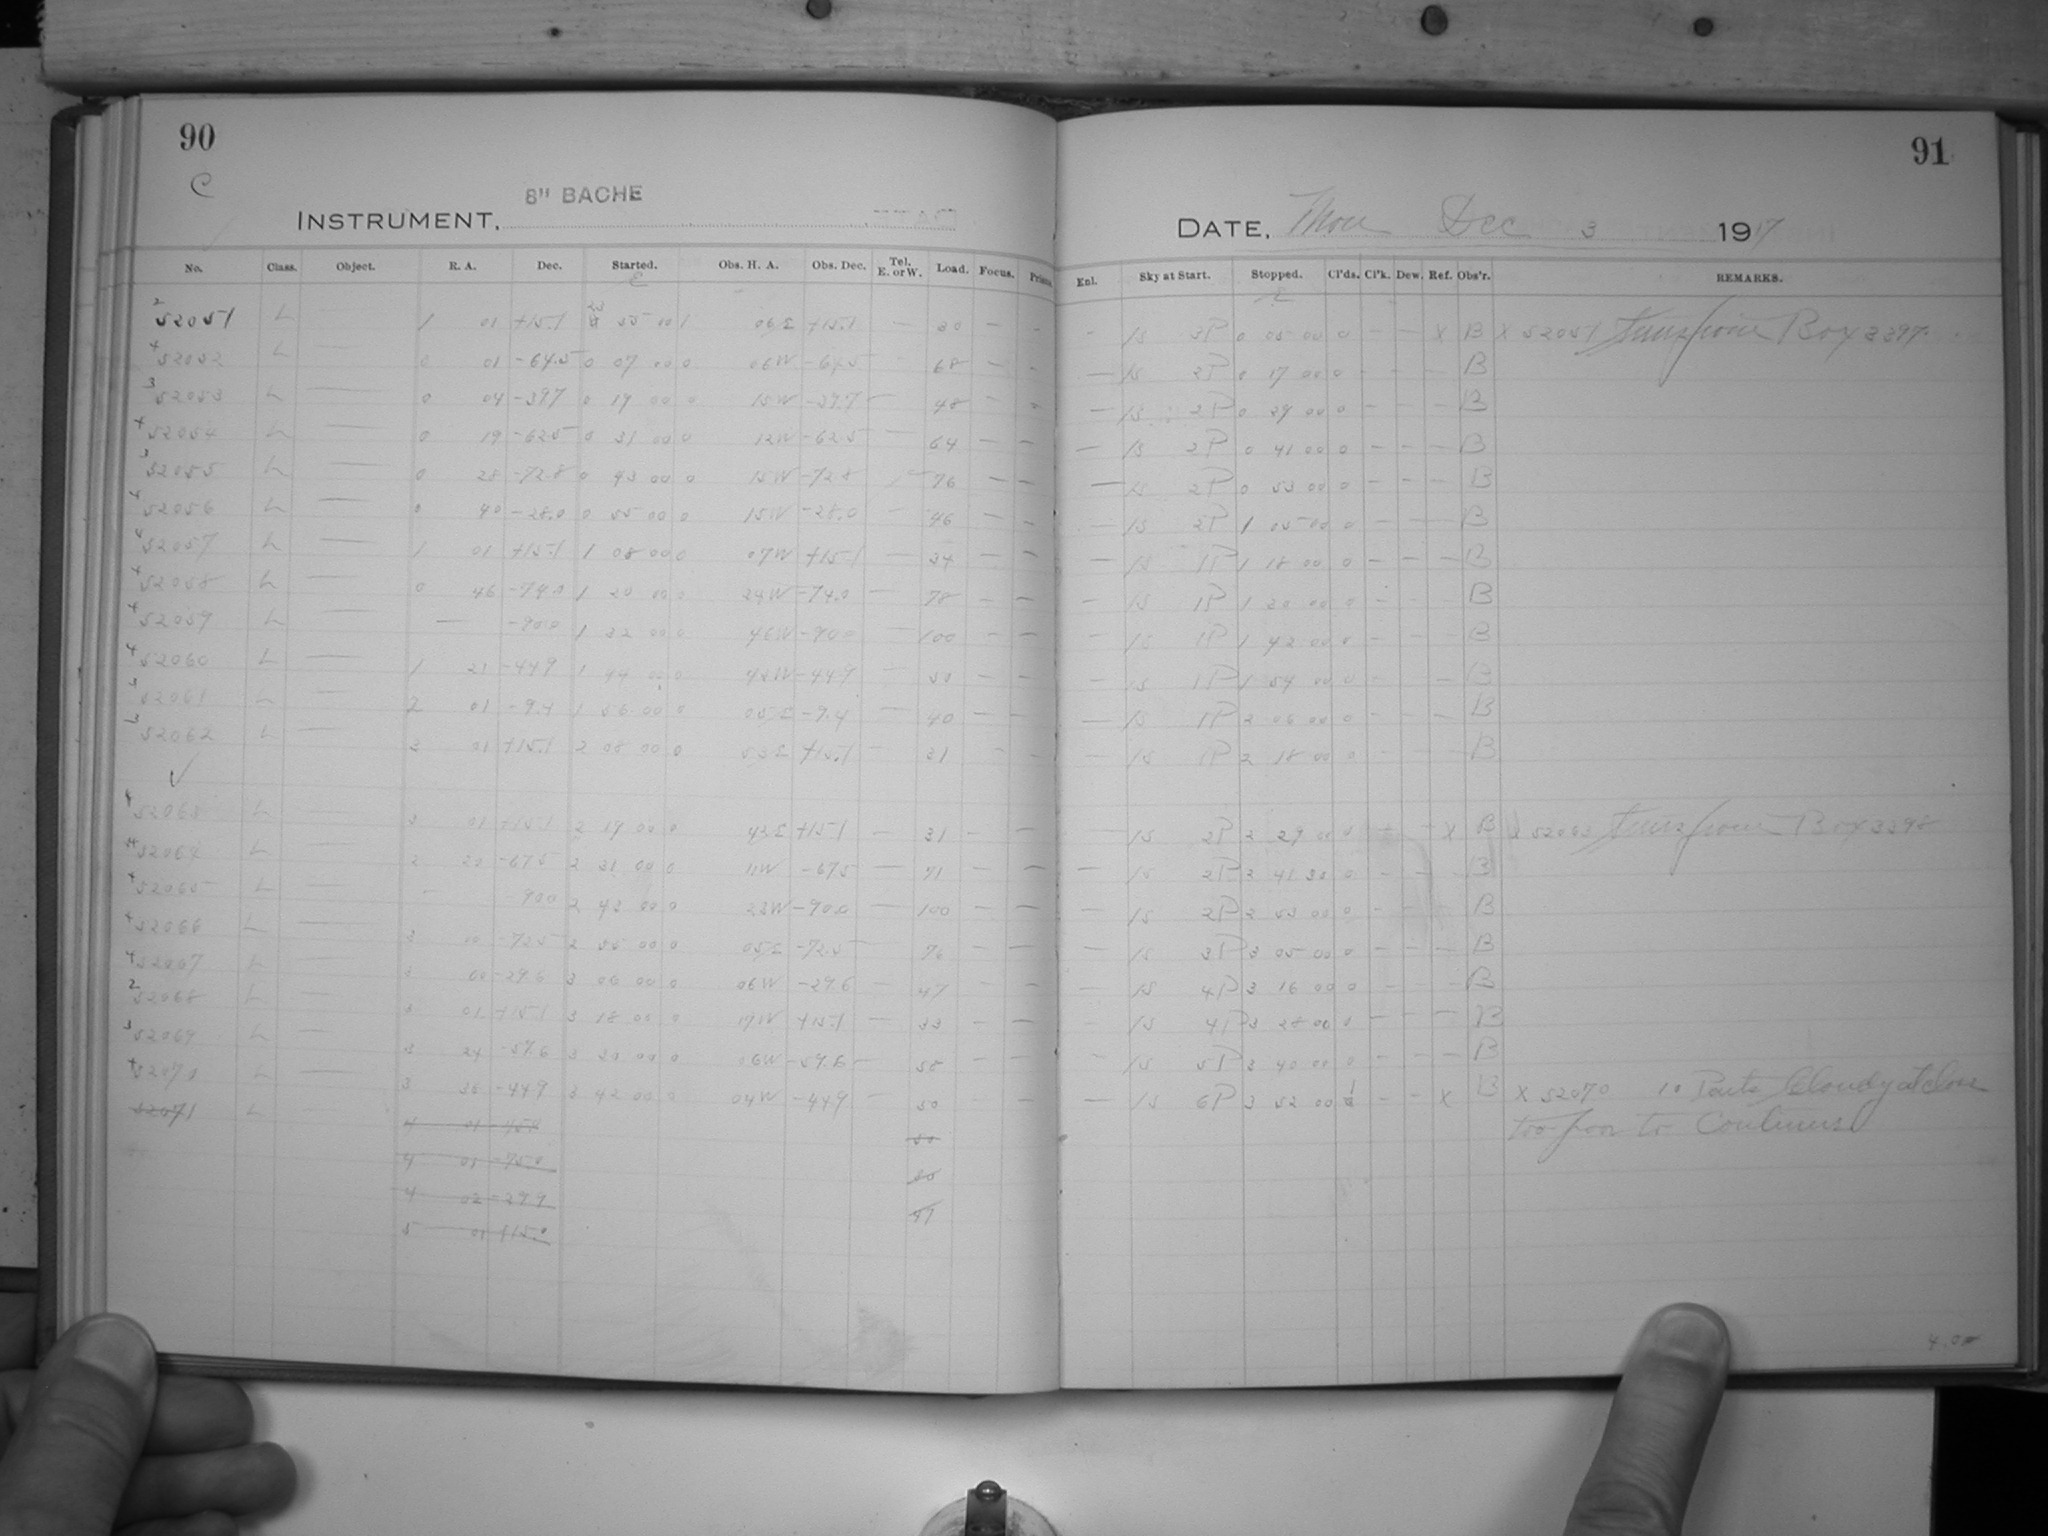 90
C
8" BACHE
INSTRUMENT,
No. Class. Object. R. A. Dec. Started. Obs. H. A. Obs. Dec. Tel. E. or W. Load. Focus.
2 52051 L — 1 01 +15.1 55 00 06 E +15.1 — 30 — -
4 52052 L — 0 01 -64.5 0 07 00 0 06 W -64.5 68 — -
3 52053 L — 0 04 -39.7 0 19 00 0 15 W -39.7 — 48 — -
4 52054 L — 0 19 -62.5 0 31 00 0 12 W -62.5 — 64 — —
3 52055 L — 0 28 -72.8 0 43 00 0 15 W -72.8 76 — —
4 52056 L — 0 40 -28.0 0 55 00 0 15 W -28.0 — 46 — -
4 52057 L — 1 01 +15.1 1 08 00 0 07 W +15.1 — 34 — —
4 52058 L — 0 46 -74.0 1 20 00 0 34 W -74.0 — 78 — —
4 52059 L — — -90.0 1 32 00 0 46 W -90.0 — 100 — —
4 52060 L — 1 21 -44.9 1 44 00 0 -44.9 — 50 — —
3 52061 L — 2 01 -9.4 1 56 00 0 05 E -9.4 — 40 — —
3 52062 L — 3 01 +15.1 2 08 00 0 53 E +15.1 — 31 — —
✓
52063 L — 3 01 +15.1 2 19 00 0 42 E +15.1 — 31 — —
52064 L — 2 20 -67.5 2 31 00 0 11 W -67.5 — 71 — —
4 52065 L — — 90.0 2 43 00 0 -90.0 — 100 — —
4 52066 L — 3 00 -72.5 2 55 00 0 05 E -72.5 — 76 — —
4 52067 L — 3 00 -29.6 3 06 00 0 06 W -29.6 — 47 — —
2 52068 L — 3 01 +15.1 3 18 00 0 17 W +15.1 — 33 — —
3 52069 L — 3 24 3 30 00 0 06 W — 58 — —
4 52070 L — 3 38 -44.9 3 42 00 0 04 W -44.9 — 50 — —
52071 L 4 01 50
4 01 -75.0 80
4 02 -29.9 47
5 01 +15.0
91
DATE, Mon Dec 3 1917
Enl. Sky at Start. Stopped. Cl'ds. Cl'k. Dew. Ref. Obs'r. REMARKS.
- 15 3P 0 05 00 0 - - X B X 52051 Box 3297.
— 15 2P 0 17 00 0 - - - B
— 15 2P 0 29 00 0 - - - B
— 15 2P 0 41 00 0 - - - B
— 15 2P 0 53 00 0 - - - B
— 15 2P 1 05 00 0 - - - B
— 15 1P 1 18 00 0 - - - B
— 15 1P 1 30 00 0 - - - B
— 15 1P 1 42 00 0 - - - B
— 15 1P 1 54 00 0 - - B
— 15 1P 2 06 00 0 - - - B
— 15 1P 2 18 00 0 - - - B
— 15 2P 2 29 00 0 - - X B X 52063 Box 3298
— 15 2P 2 41 0 - - - B
— 15 2P 2 53 00 0 - - - B
— 15 3P 3 05 00 0 - - - B
— 15 4P 3 16 00 0 - - - B
— 15 4P 3 28 00 0 - - - B
— 15 5P 3 40 00 0 - - - B
— 15 6P 3 52 00 - - X B X 52070 10 Parts Cloudy at close
too poor to Continue
4.0